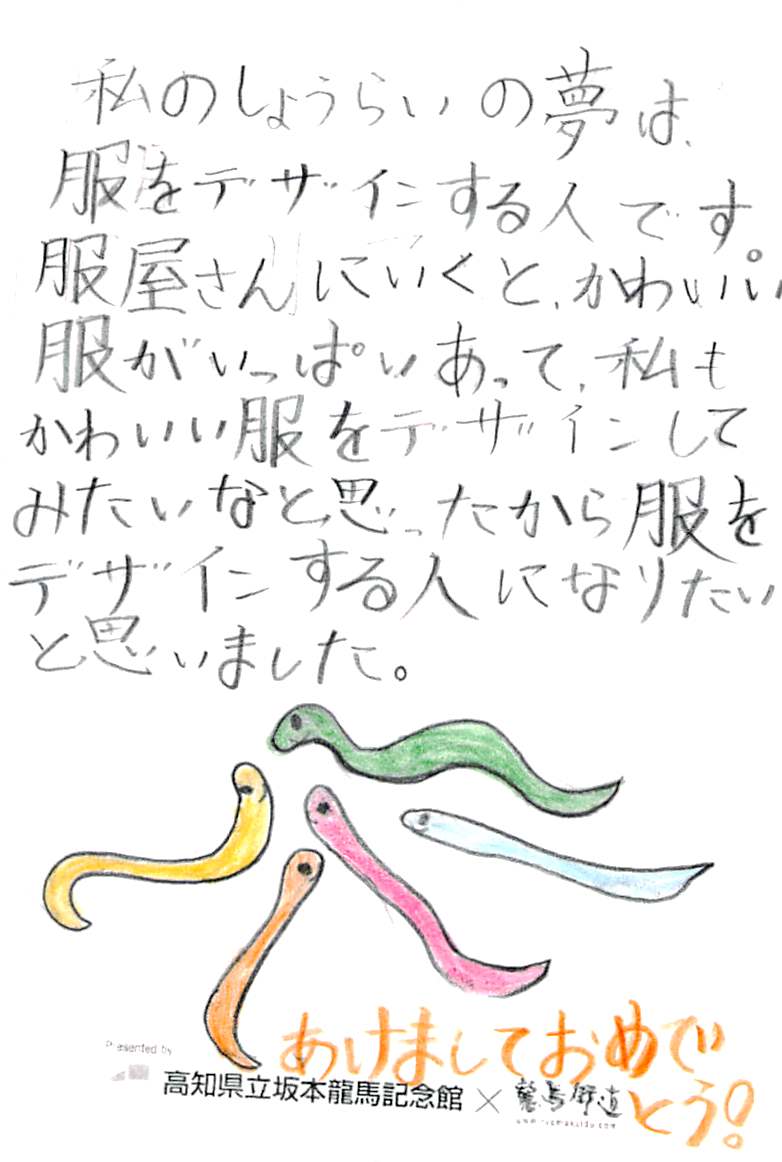 私のしょうらいの夢は、
服をデザインする人です。
服屋さんにいくと、かわいい
服がいっぱいあって、私も
かわいい服をデザインして
みたいなと思ったから服を
デザインする人になりたい
と思いました。
あけましておめで
とう!
Presented by
高知県立坂本龍馬記念館 × 龍馬街道
www.ryomakaido.com